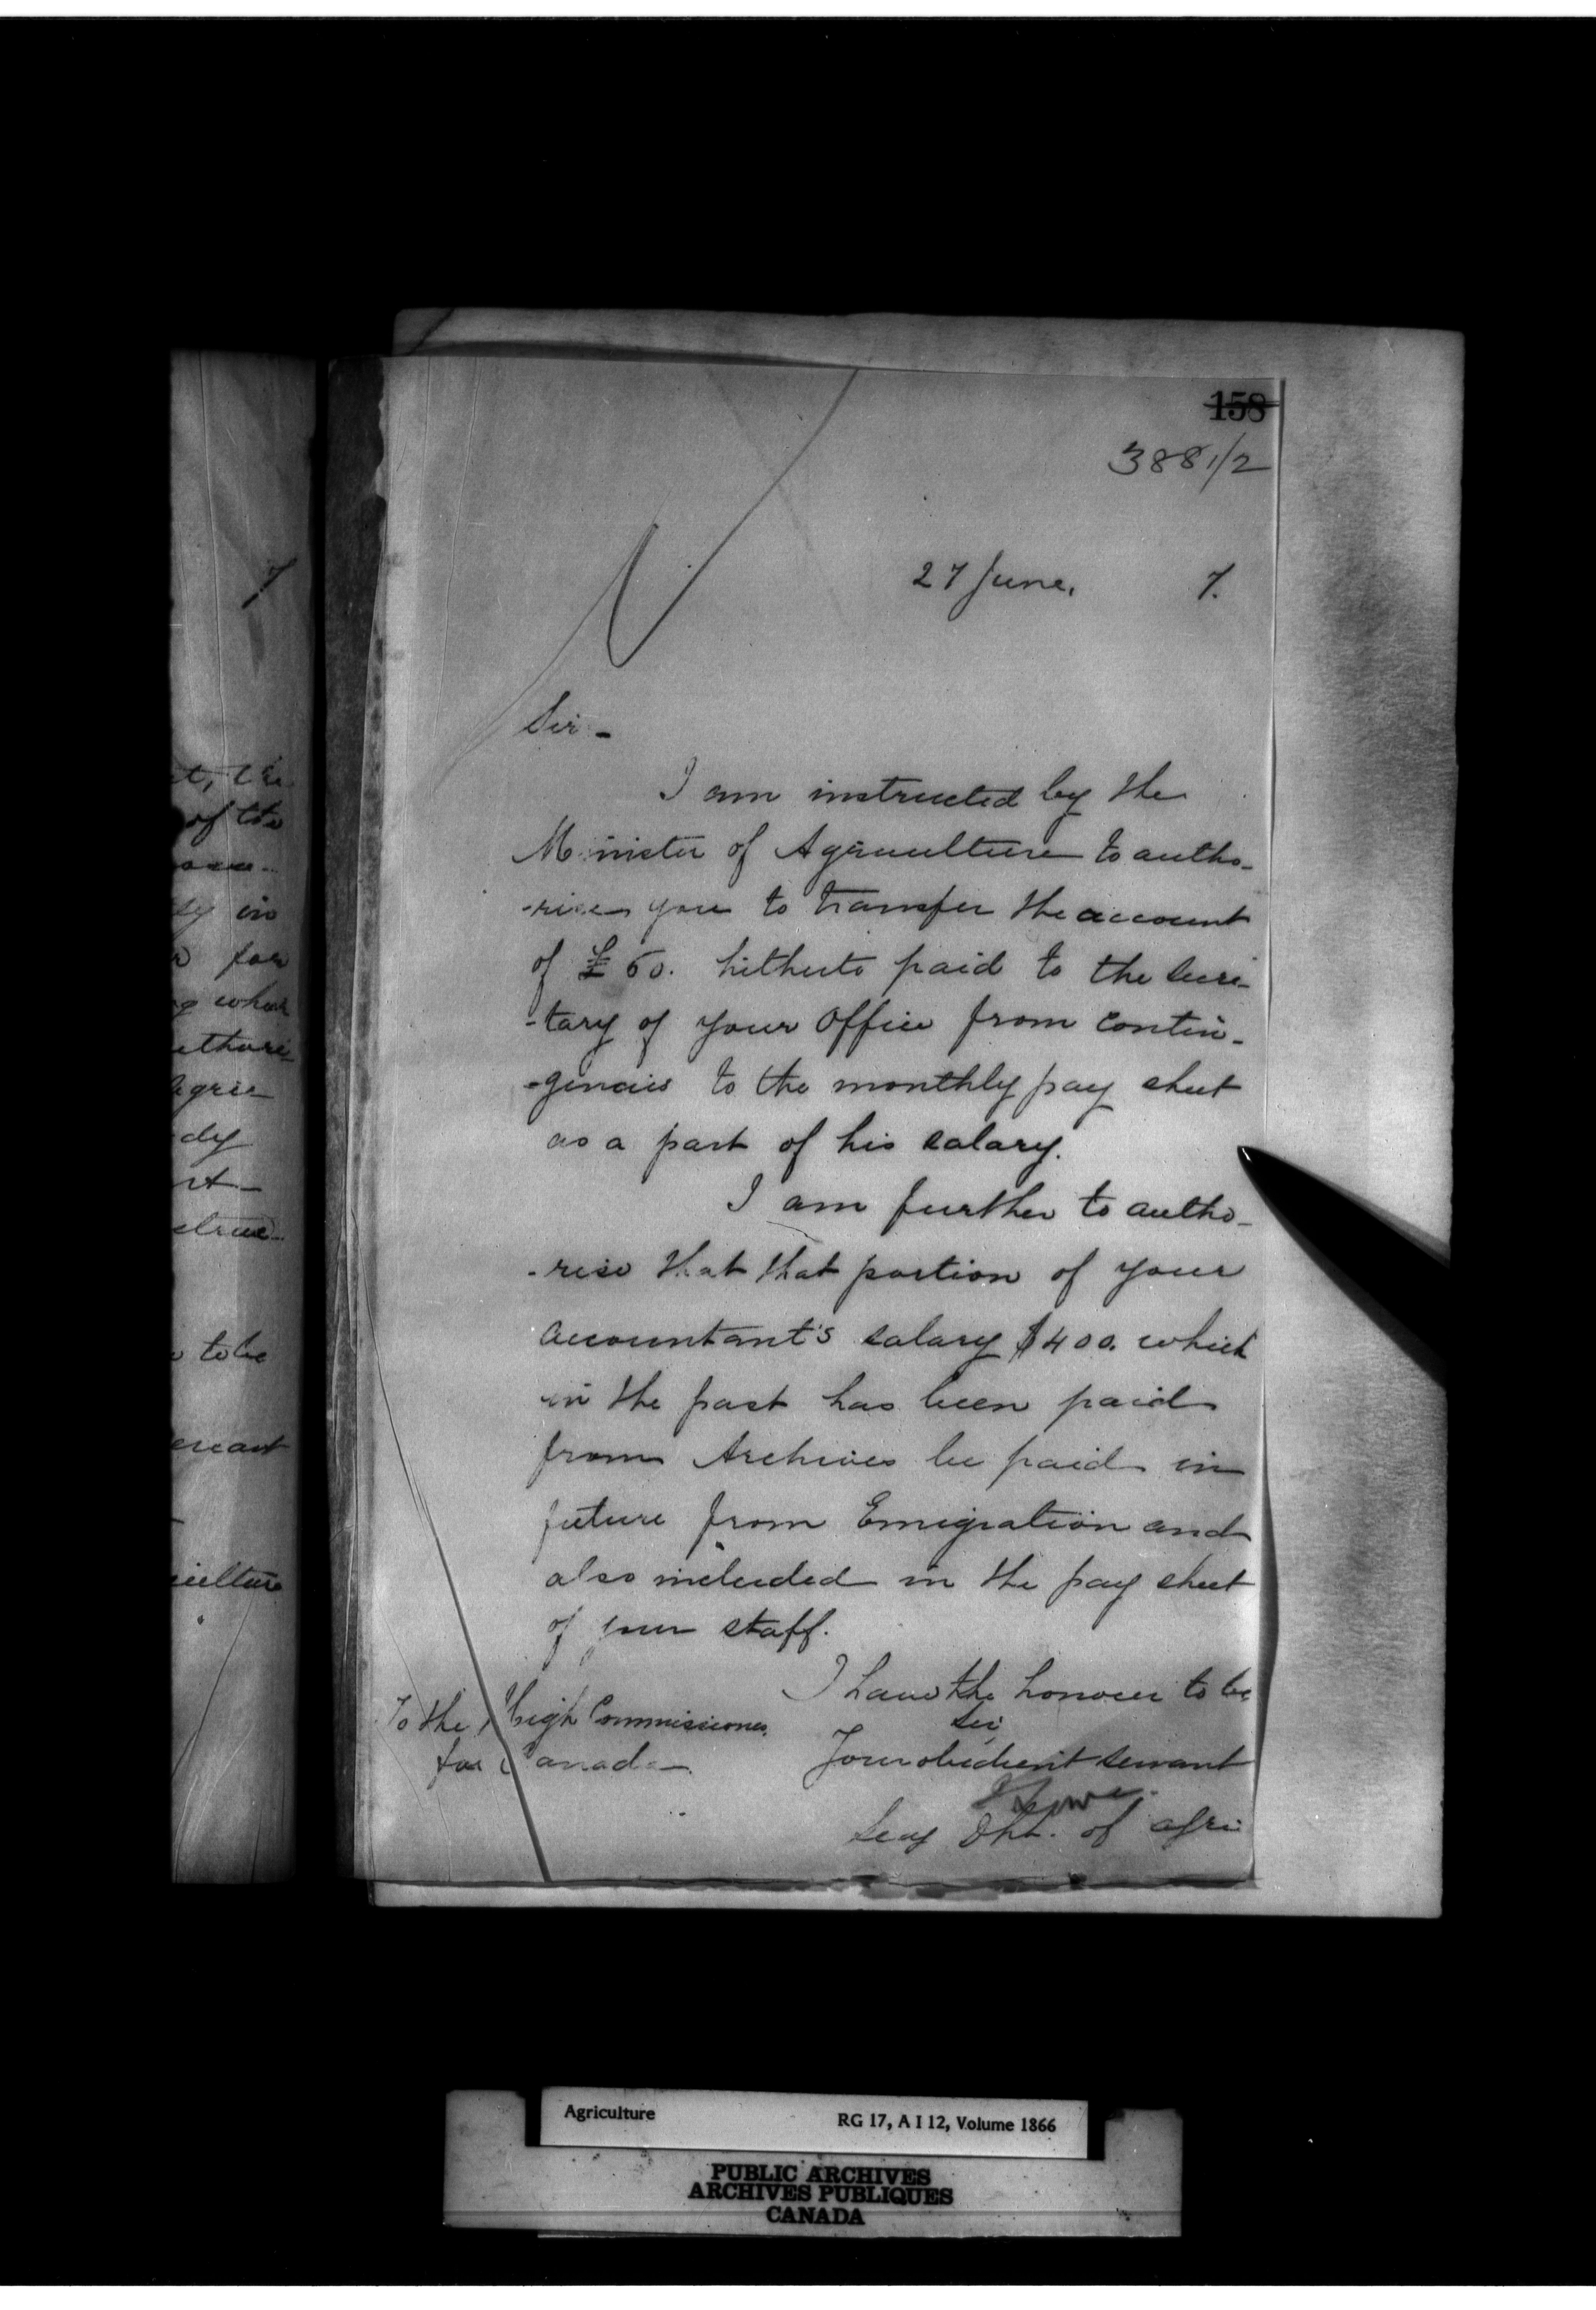 158
3881/2
27 June, 7.
Sir -
I am instructed by the
Minister of Agriculture to autho-
-rise you to transfer the account
of £60. hitherto paid to the Secre-
-tary of your Office from contin-
-gencies to the monthly pay sheet
as a part of his salary.
I am further to autho-
-rise that that portion of your
accountant's salary $400. which
in the past has been paid
from Archives be paid in
future from Emigration and
also included in the pay sheet
of your staff.
I have the honour to be
Sir
Your obedient servant
Lowe
Secy Dpt. of Agri
To the High Commissioner
for Canada
7
of the
in
for
to be
Agriculture
RG 17, A I 12, Volume 1866
PUBLIC ARCHIVES
ARCHIVES PUBLIQUES
CANADA